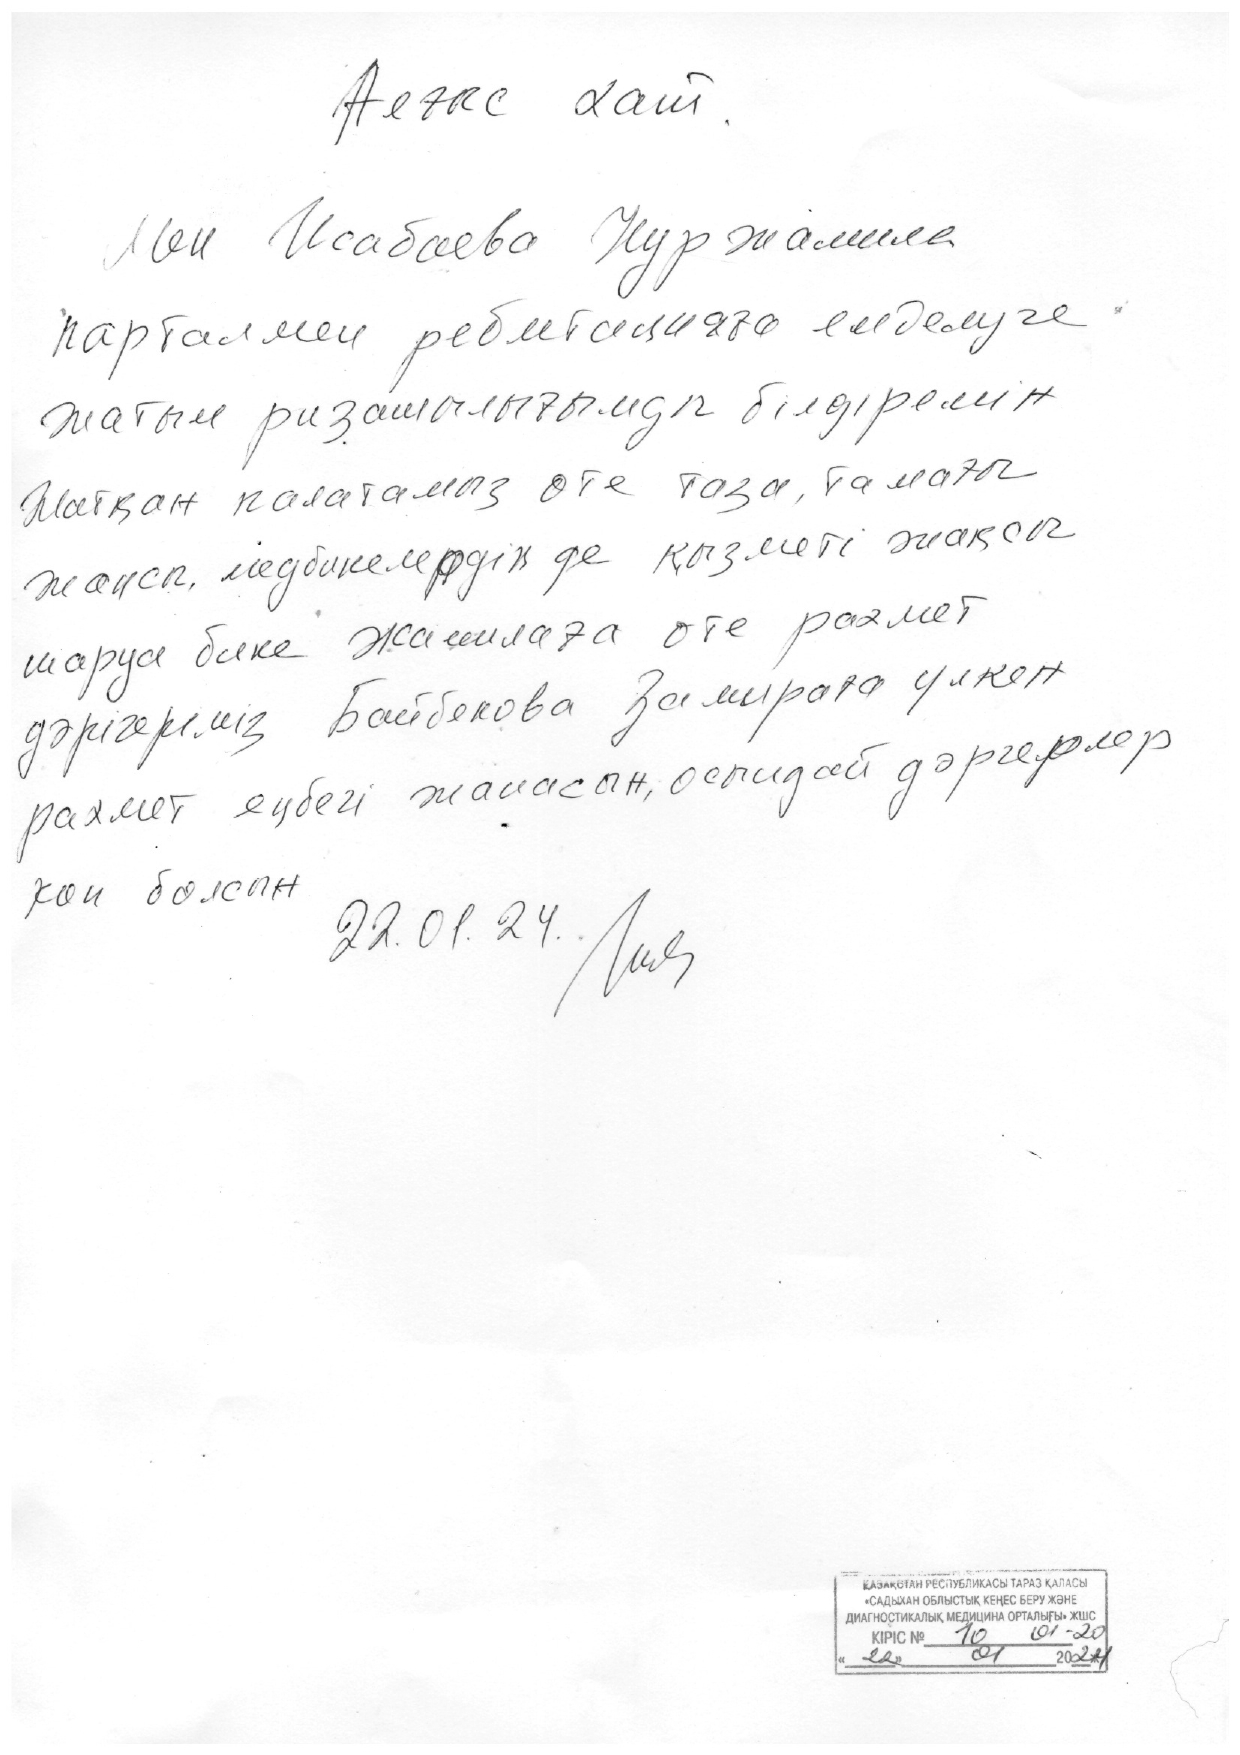 Алғыс хат.
Мен Исабаева Нуржамила
парталмен реблитацияға емделуге
жатып ризашылығымды білдіремін
Жатқан палатамыз өте таза, тамағы
жақсы, медбикелердің де қызметі жақсы
шаруа бике Жамилаға өте рахмет
дәрігеріміз Байбекова Замираға үлкен
рахмет еңбегі жанасын, осындай дәргерлер
көп болсын
22.01.24.
ҚАЗАҚСТАН РЕСПУБЛИКАСЫ ТАРАЗ ҚАЛАСЫ
«САДЫХАН ОБЛЫСТЫҚ КЕҢЕС БЕРУ ЖӘНЕ
ДИАГНОСТИКАЛЫҚ МЕДИЦИНА ОРТАЛЫҒЫ» ЖШС
КІРІС № 10 01-20
«22» 01 2024